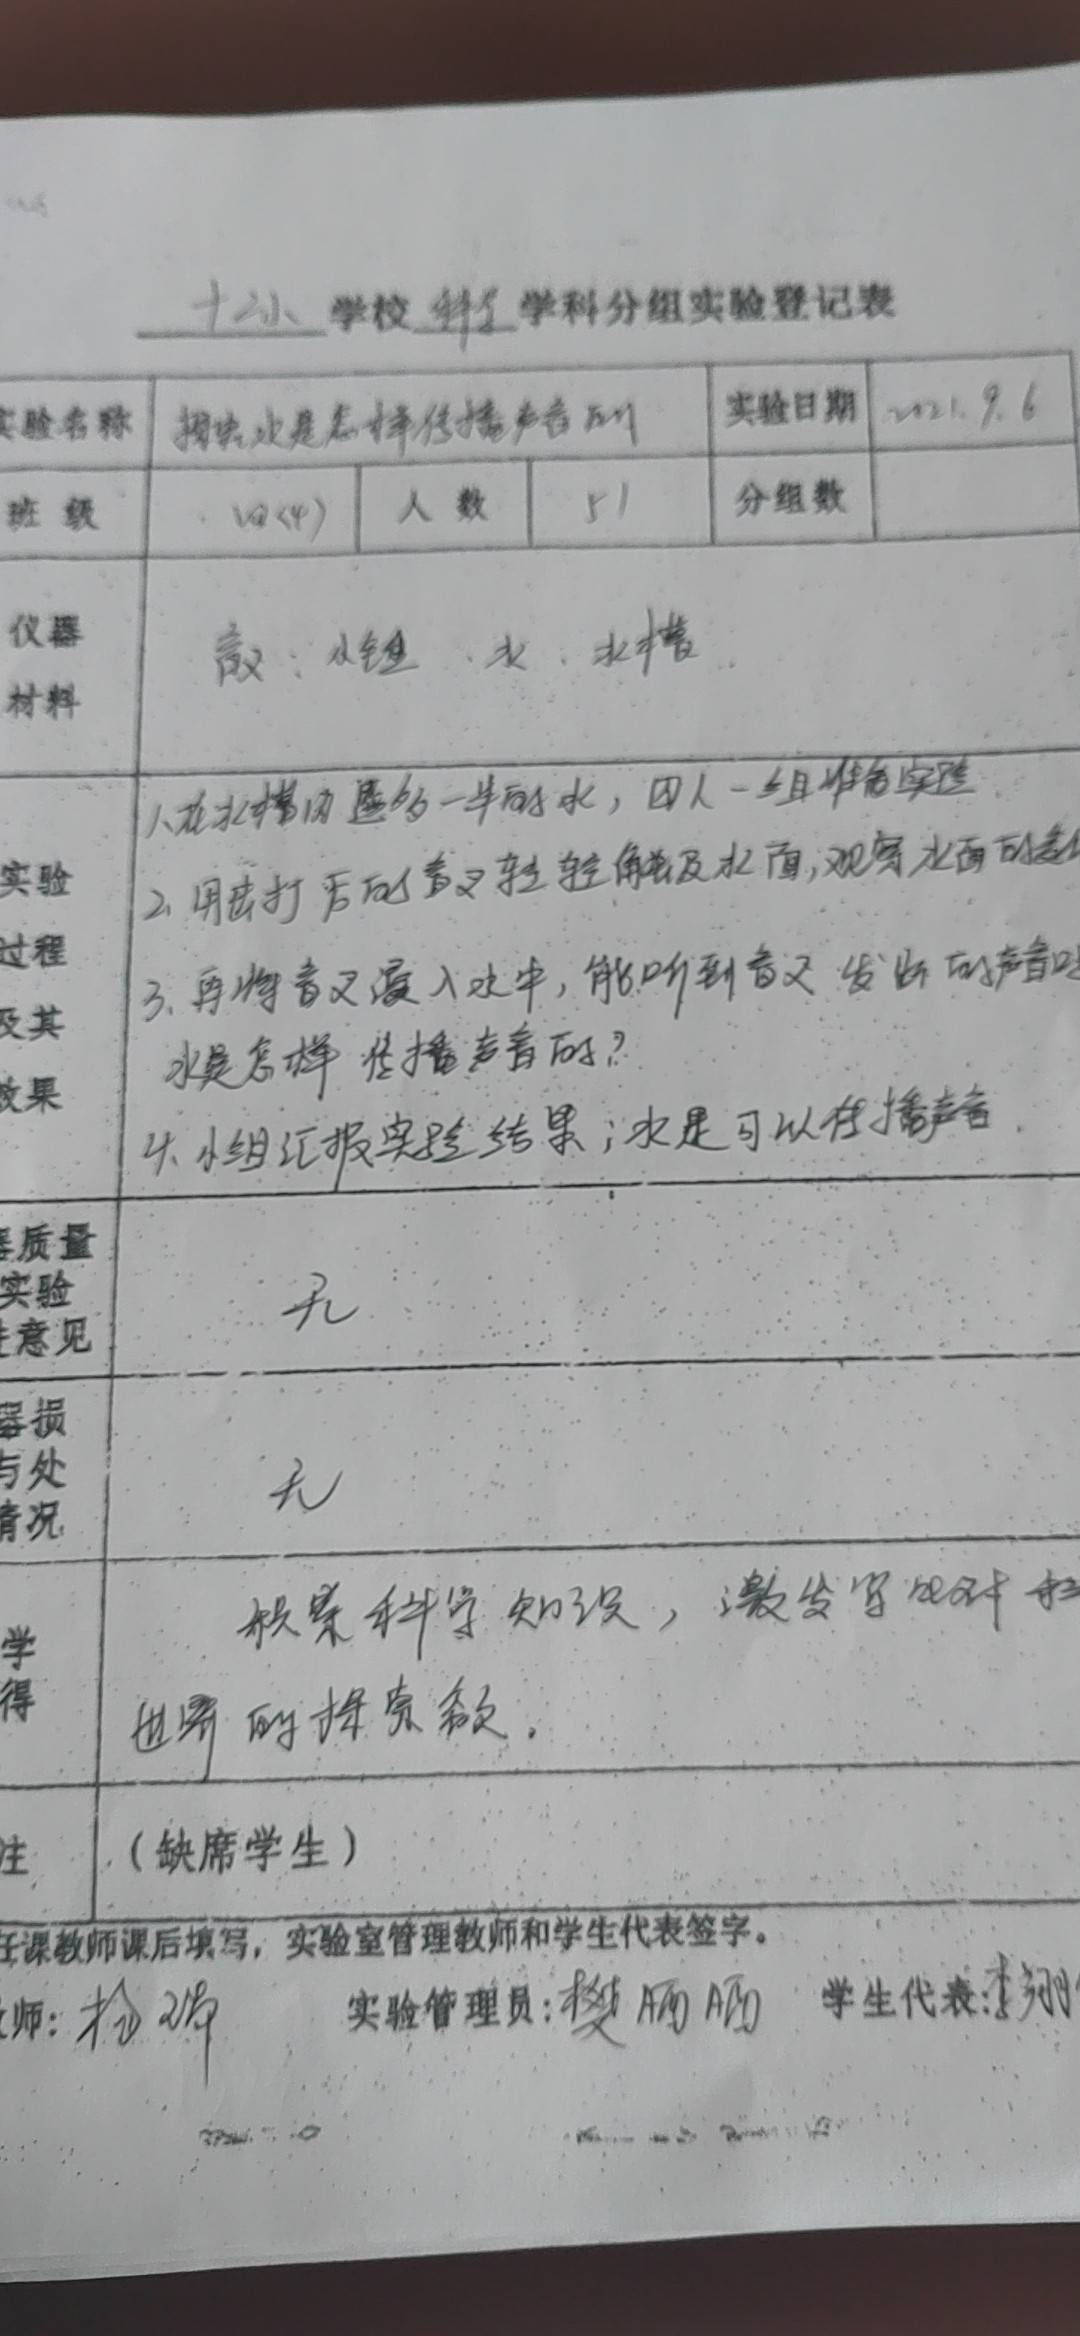 十二小 学校 科学 学科分组实验登记表
实验名称 探究水是怎样传播声音的 实验日期 2021.9.6
班 级 四(4) 人 数 51 分组数
仪器
材料
音叉、水 、水槽
1、在水槽内盛约一半的水,四人一组准备实验
实验
2、用击打后的音叉轻轻触及水面,观察水面的变化
过程
3、再将音叉浸入水中,能听到音叉发出的声音吗
及其
水是怎样传播声音的?
效果
4、小组汇报实验结果;水是可以传播声音
器质量
实验
意见
无
器损
与处
情况
无
积累科学知识,激发学生对科
学
得
世界的探究欲。
注 (缺席学生)
任课教师课后填写,实验室管理教师和学生代表签字。
教师: 实验管理员:樊丽丽 学生代表:李翔